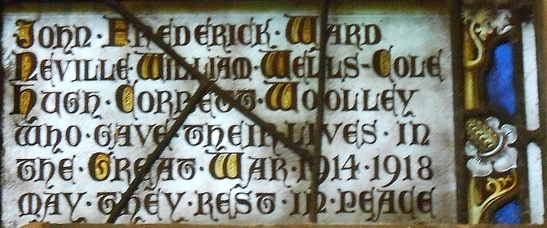 John · Frederick · Ward
Neville William Wells-Cole
Hugh · Cornett · Woolley
who · gave · their lives · in
the · Great · War · 1914 · 1918
may · they · rest · in · peace